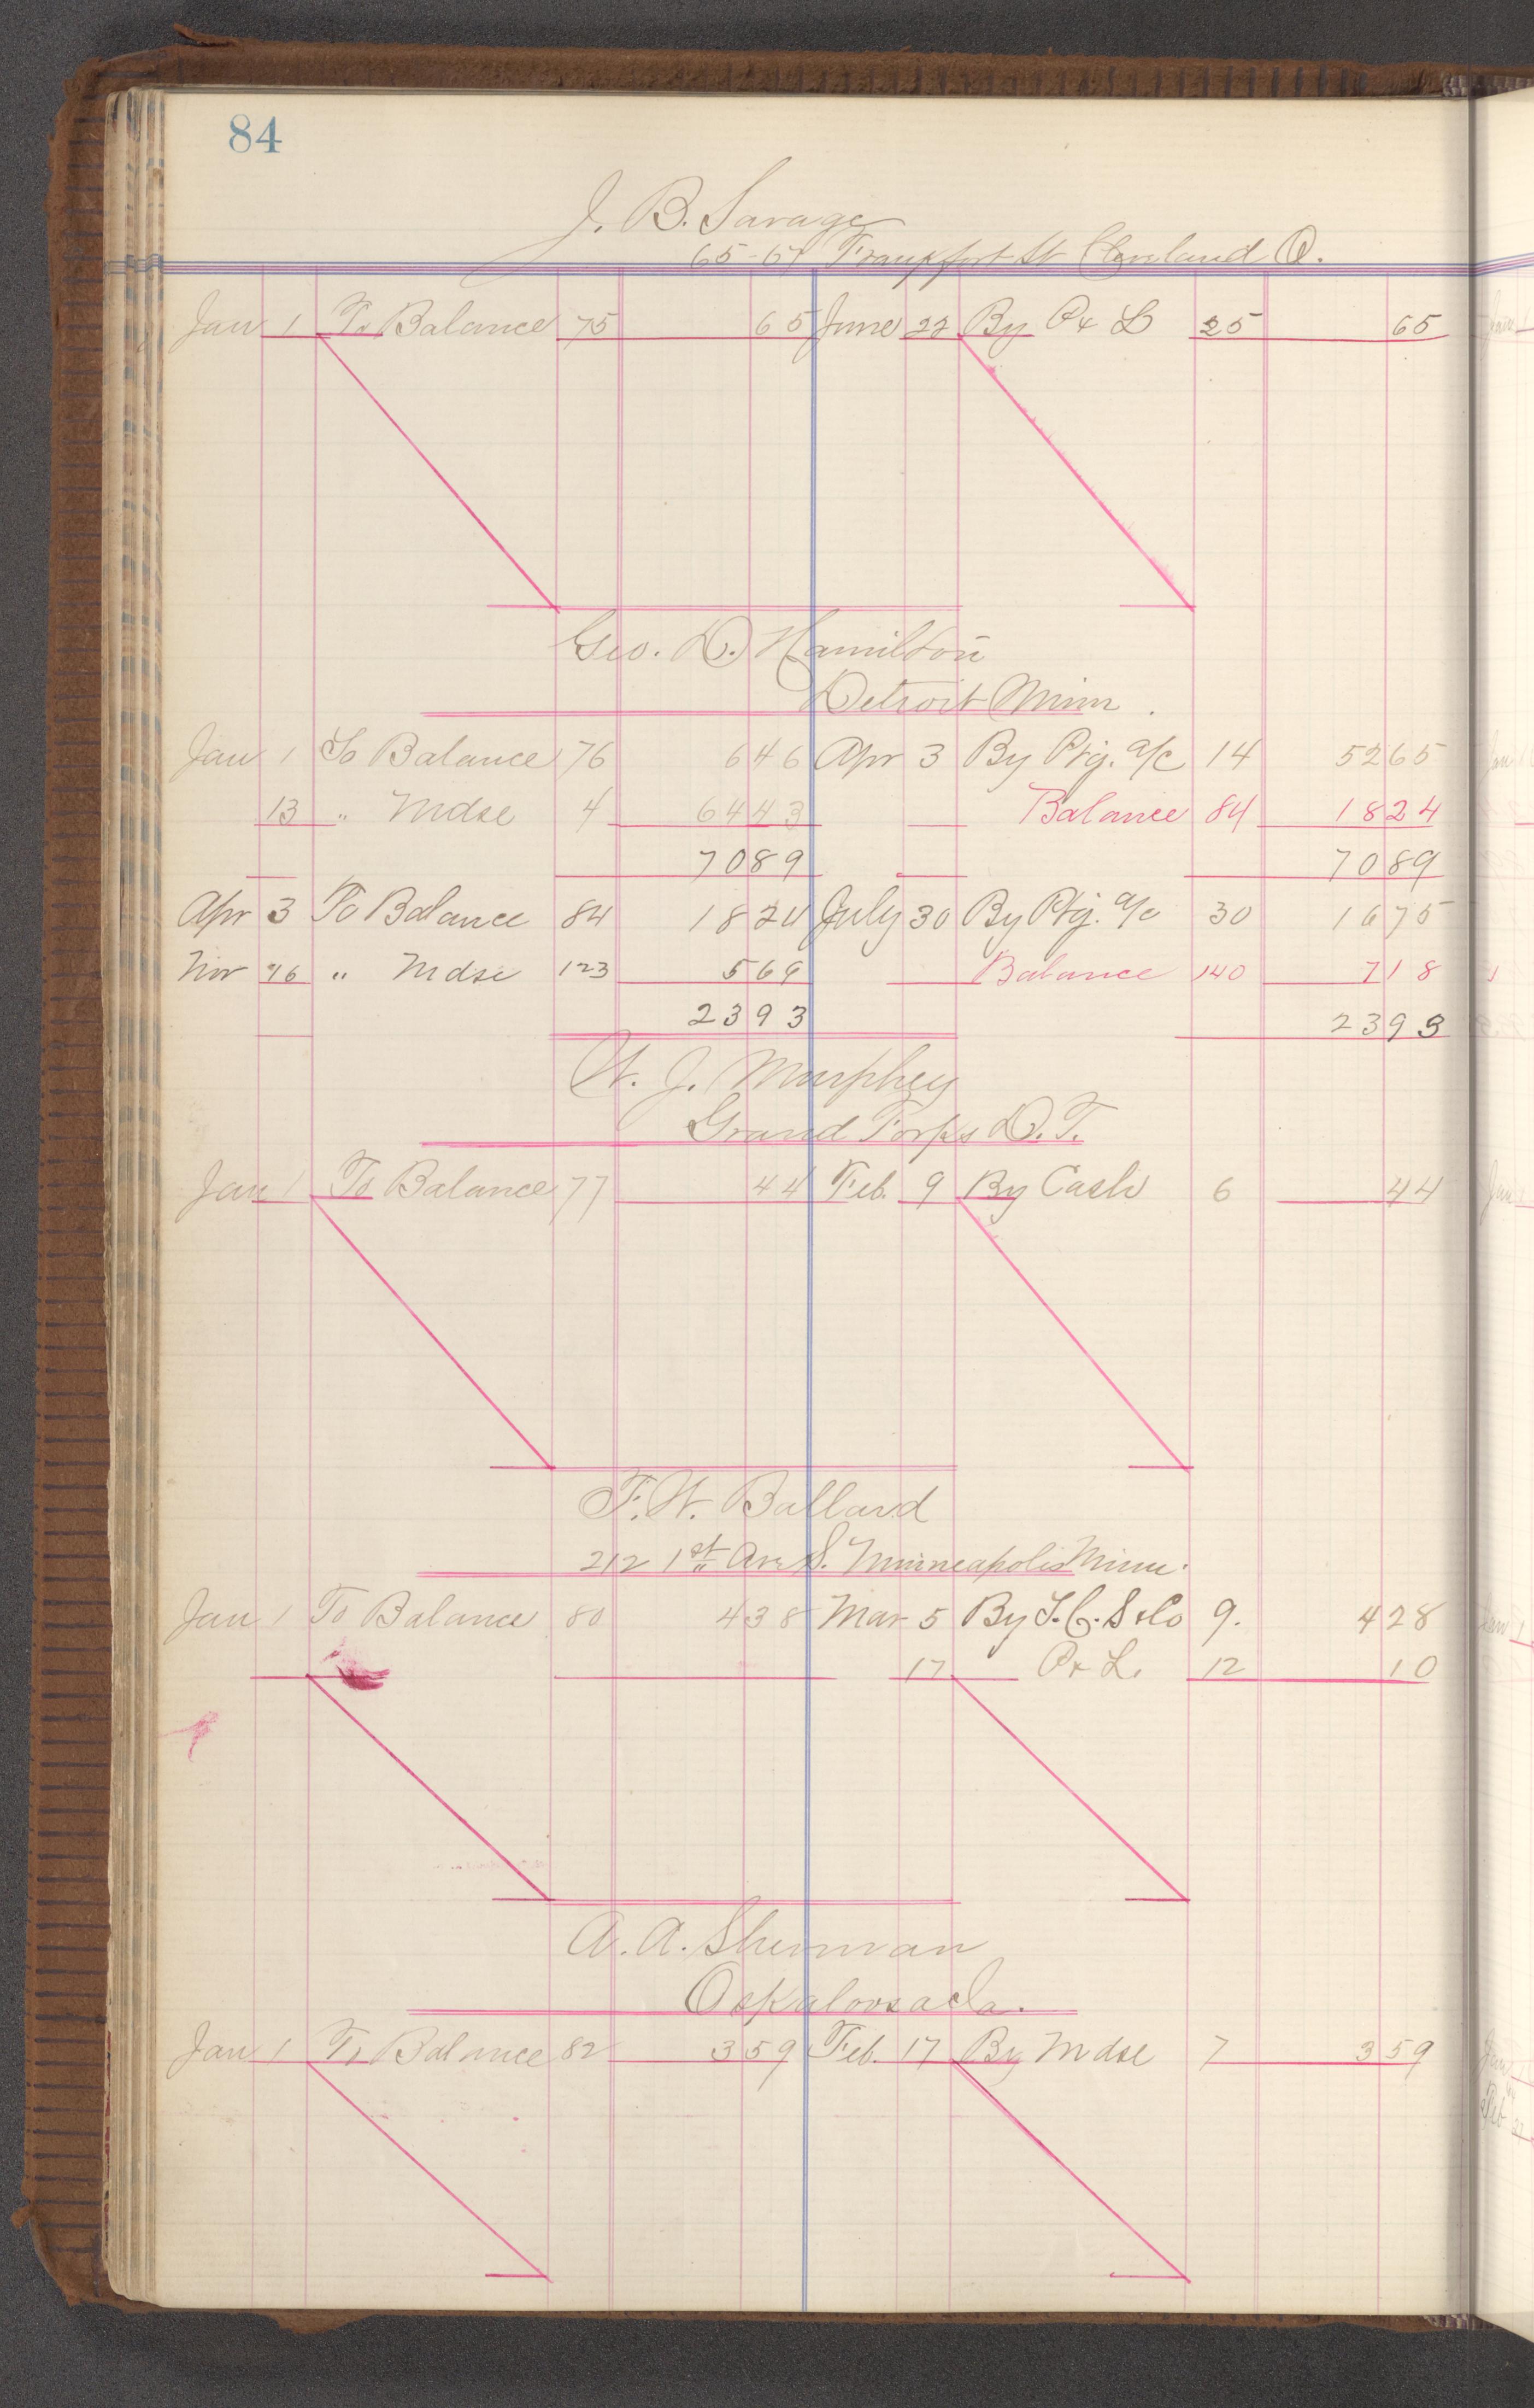 84
J. B. Savage
65-67 Frankfort St Cleveland O.
Jan 1 To Balance 75 65 June 22 By P & L 25 65
Geo. D. Hamilton
Detroit Minn.
Jan 1 To Balance 76 646 Apr 3 By Ptg. a/c 14 5265
13 " Mdse 4 6443 Balance 84 1824
7089 7089
Apr 3 To Balance 84 1824 July 30 By Ptg. a/c 30 1675
Nov 16 " Mdse 123 569 Balance 140 718
2393 2393
W. J. Murphey
Grand Forks D.T.
Jan 1 To Balance 77 44 Feb. 9 By Cash 6 44
F. W. Ballard
212 1st Ave S. Minneapolis Minn.
Jan 1 To Balance 80 438 Mar 5 By T. C. S & Co 9. 428
17 P & L. 12 10
A. A. Sherman
Oskaloosa Ia.
Jan 1 To Balance 82 359 Feb. 17 By Mdse 7 359